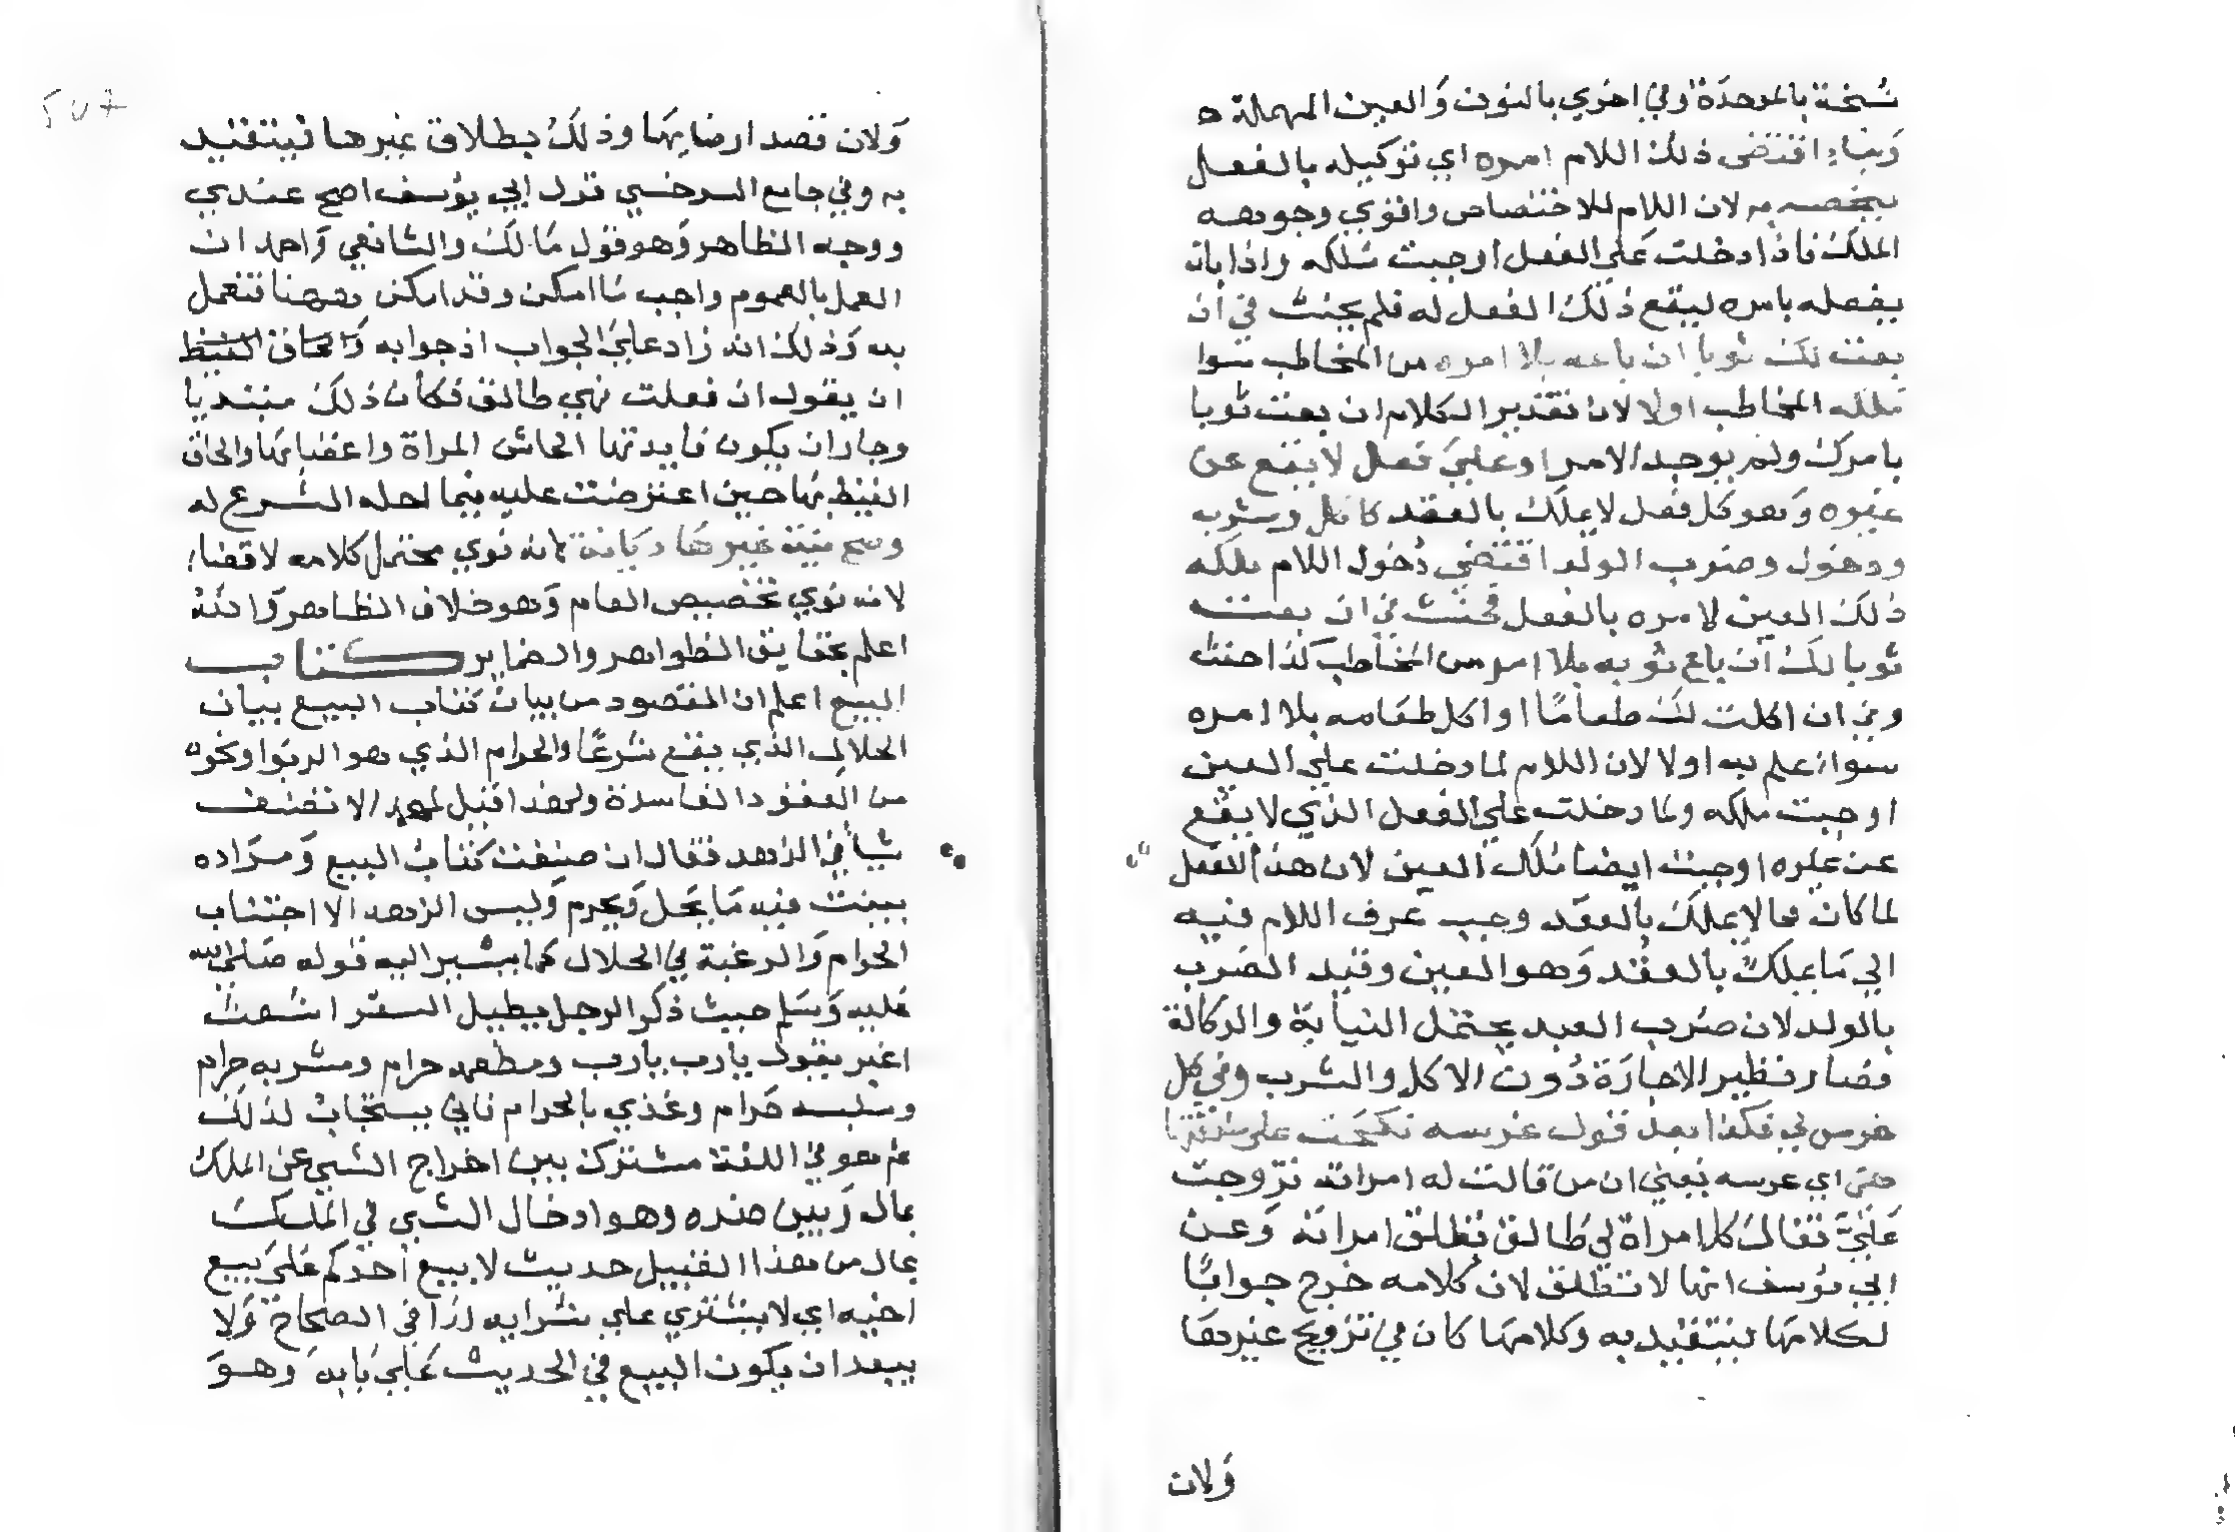 نسخة بالموحدة وفي اخري بالنون والعين المهملة ه
وبناء اقتضى ذلك اللام امره اي توكيله بالفعل
ليخصه به لان اللام للاختصاص واقوي وجوهه
الملك فاذا دخلت علي الفعل اوجبت ملكه واذا بان
يفعله بامره ليقع ذلك الفعل له فلم يحنث في ان
بعت لك ثوبا ان باعه بلا امره من المخاطب سوا
ملكه المخاطب اولا لان تقدير الكلام ان بعت ثوبا
بامرك ولم يوجد الامر وعلي فعل لا يقع عن
غيره وهو كل فعل لا يملك بالعقد كاكل وشرب
ودخول وضرب الولد اقتضي دخول اللام ملكه
ذلك العين لا امره بالفعل فحنث في ان بعت
ثوبا لك ان باع ثوبه بلا امر من المخاطب كذا حنث
وفي ان اكلت لك طعاما او اكل طعامه بلا امره
سواء علم به اولا لان اللام لما دخلت علي العين
اوجبت ملكه ولما دخلت علي الفعل الذي لا يقع
عن غيره اوجبت ايضا ملك العين لان هذا الفعل
لما كان مما لا يملك بالعقد وجب صرف اللام فيه
الي ما يملك بالعقد وهو العين وقيد الضرب
بالولد لان ضرب العبد يحتمل النيابة والوكالة
فصار نظير الاجارة دون الاكل والشرب وفي كل
عرس لي فكذا بعد قول عرسه نكحت علي
حتى اي عرسه يعني ان من قالت له امراته تزوجت
علي فقال كل امراة لي طالق تطلق امراته وعن
ابي يوسف انها لا تطلق لان كلامه خرج جوابا
لكلامها فيتقيد به وكلامها كان في تزويج غيرها
ولان
ولان قصد ارضايها وذلك بطلاق غيرها فيتقيد
به وفي جامع السرخسي قول ابي يوسف اصح عندي
ووجه الظاهر وهو قول مالك والشافعي واحمد ان
العمل بالعموم واجب ما امكن وقد امكن ههنا فنعمل
به وذلك انه زاد علي الجواب اذ جوابه
ان يقول ان فعلت فهي طالق فكان ذلك مبتديا
وجاز ان يكون فايدتها ايحاش المراة واغضابها والحاق
الغيظ بها حين اعترضت عليه فيما احله الشرع له
وصح نية غيرها ديانة لانه نوي محتمل كلامه لا قضاء
لانه نوي تخصيص العام وهو خلاف الظاهر والله
اعلم بحقايق الظواهر والضماير كتاب
البيع اعلم ان المقصود من بيان كتاب البيع بيان
الحلال الذي يقع شرعا والحرام الذي هو الربوا ونحوه
من العقود الفاسدة ولهذا قيل لمحمد الا تصنف
شيا في الزهد فقال ان صنفت كتاب البيع ومراده
بينت فيه ما يحل ويحرم وليس الزهد الا اجتناب
الحرام والرغبة في الحلال كما يشير اليه قوله صلي الله
عليه وسلم حيث ذكر الرجل يطيل السفر اشعث
اغبر يقول يارب يارب ومطعمه حرام ومشربه حرام
وملبسه حرام وغذي بالحرام فاني يستجاب لذلك
ثم هو في اللغة مشترك بين اخراج الشي عن الملك
بمال وبين ضده وهو ادخال الشي في الملك
بمال من هذا القبيل حديث لا يبيع احدكم علي بيع
اخيه اي لا يشتري علي شرايه كذا في الصحاح ولا
يبعد ان يكون البيع في الحديث علي بابه وهو